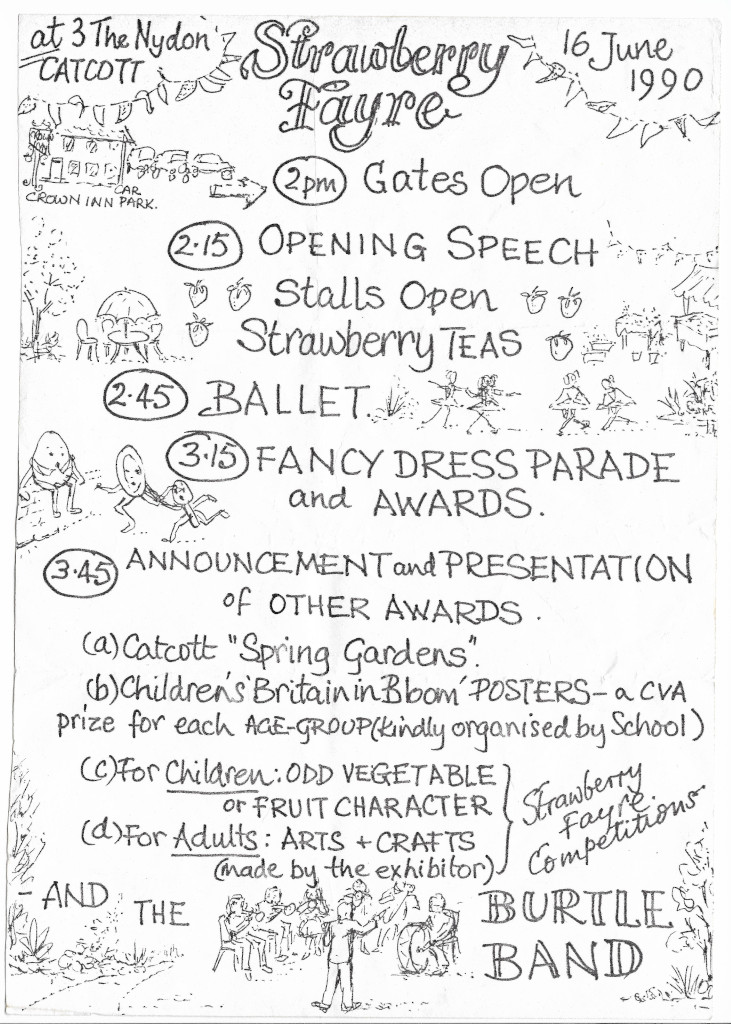 at 3 The Nydon
CATCOTT
Strawberry
Fayre
16 June
1990
CROWN INN CAR PARK.
2pm Gates Open
2.15 OPENING SPEECH
Stalls Open
Strawberry TEAS
2.45 BALLET.
3.15 FANCY DRESS PARADE
and AWARDS.
3.45 ANNOUNCEMENT and PRESENTATION
of OTHER AWARDS.
(a) Catcott "Spring Gardens".
(b) Children's 'Britain in Bloom' POSTERS - a CVA
prize for each AGE-GROUP (kindly organised by School)
(c) For Children: ODD VEGETABLE
or FRUIT CHARACTER
(d) For Adults: ARTS + CRAFTS
(made by the exhibitor)
Strawberry
Fayre.
Competitions
- AND THE BURTLE
BAND